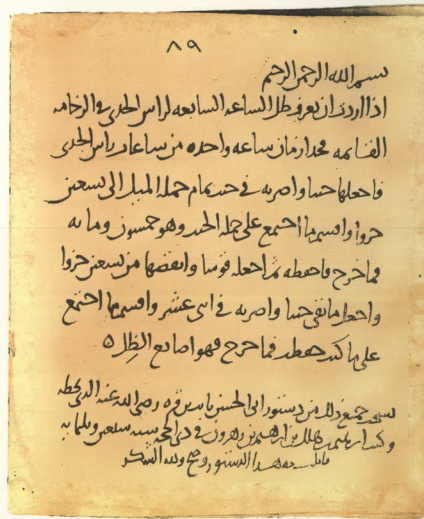 ٨٩
بسم الله الرحمن الرحيم
اذا اردت ان تعرف ظل الساعه السابعه لراس الجدى فى الرخامه
القائمه فخد ازمان ساعه واحده من ساعات راس الجدى
فاجعلها جيبا واضربه فى جيب تمام جمله الميل الى تسعين
جزوا واقسم ما اجتمع على جمله الجيب وهو خمسون وما به
فما خرج فاحفظه ثم اجعله قوسا وانقصها من تسعين جزوا
واجعل ما بقى جيبا واضربه فى اثنى عشر واقسم ما اجتمع
على ما كنت حفظت فما خرج فهو اصابع الظل ٥
نسخت جميع ذلك من دستور ابى الحسن ثابت بن قره رضى الله عنه الذى بخطه
وكتب ابرهيم بن هلال بن ابرهيم بن زهرون فى ذى الحجه سنه سبعين وثلثمايه
قابلت به هذا الدستور وصح ولله الشكر